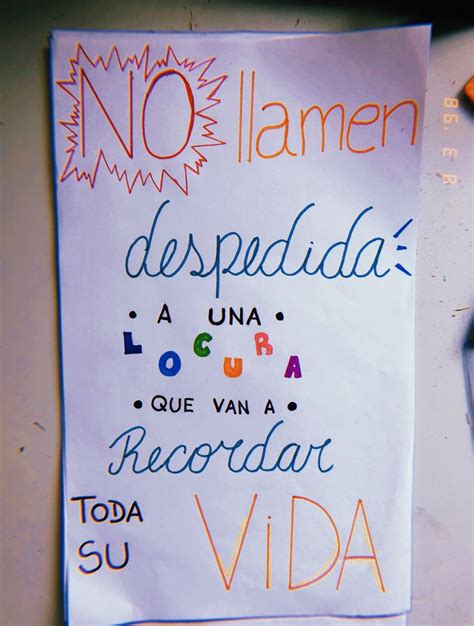 NO llamen
despedida
• A UNA •
LOCURA
• QUE VAN A •
Recordar
TODA
SU
ViDA
8 3 '98